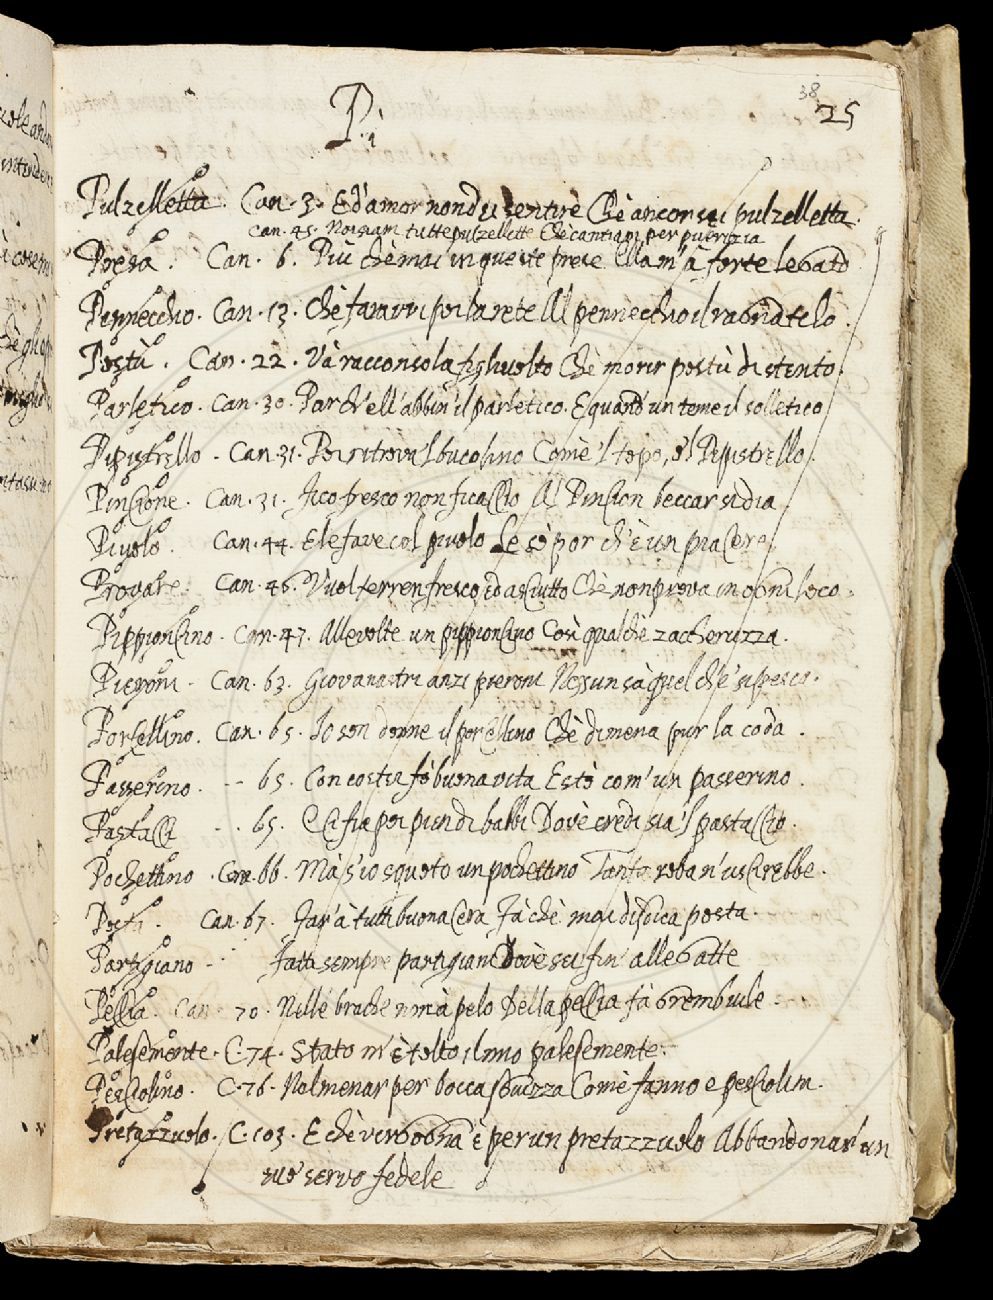 P.
38
25
Pulzelletta. Can. 3. Ed'amor non dei sentire Chè ancor sei pulzelletta.
Can. 45. Noi siam tutte pulzellette Che cantiam per puerizia
Presa. Can. 6. Più chè mai in queste prese Ella m'a forte legato
Pennecchio. Can. 13. Chè farovvi poi la rete Al pennecchio il ragnatelo.
Postù. Can. 22. Và racconsola figliuolto Chè morir postù di stento.
Parletico. Can. 30. Par ch'ell'abbin'il parletico. E quand'un teme il solletico
Pipistrello. Can. 31. Poi ritrova'l bucolino Com'è'l topo, o'l Pipistrello.
Pincione. Can. 31. Fico fresco non ficaccio Al Pincion beccar si dia
Pivolo. Can. 44. E le fave col pivolo Le sò por ch'è un piacere
Provare. Can. 46. Vuol terren fresco, ed asciutto Chè non prova in ogni loco.
Pippioncino. Can. 47. Alle volte un pippioncino Con qualchè zacheruzza.
Pieroni. Can. 63. Giovanastri anzi pieroni Nessun sà quel ch'e' si pesca.
Porcellino. Can. 65. Io son donne il porcellino Chè dimena pur la coda.
Passerino. -- 65. Con costei fò buona vita E stò com'un passerino.
Pastacci -- 65. E ci fia poi pien di babbi Dov'è credi sia'l pastaccio.
Pochettino. Can. 66. Mà s'io squoto un pochettino Tanta roba n'uscirebbe.
Posta. Can. 67. Far'à tutti buona cera Fà chè mai disdica posta.
Partigiano -- Fatti sempre partigiani Dov'è sei fin'alle gatte
Pellia. Can. 70. Nelle brache non à pelo Della pellia fà grembiule.
Palesemente. C. 74. Stato m'è tolto il mio palesemente.
Pesciolino. C. 76. Nolmenar per bocca sguizza Com'è fanno e pesciolini.
Pretazzuolo. C. 103. E chè vergogna è per un pretazzuolo Abbandonar'un
suo servo fedele